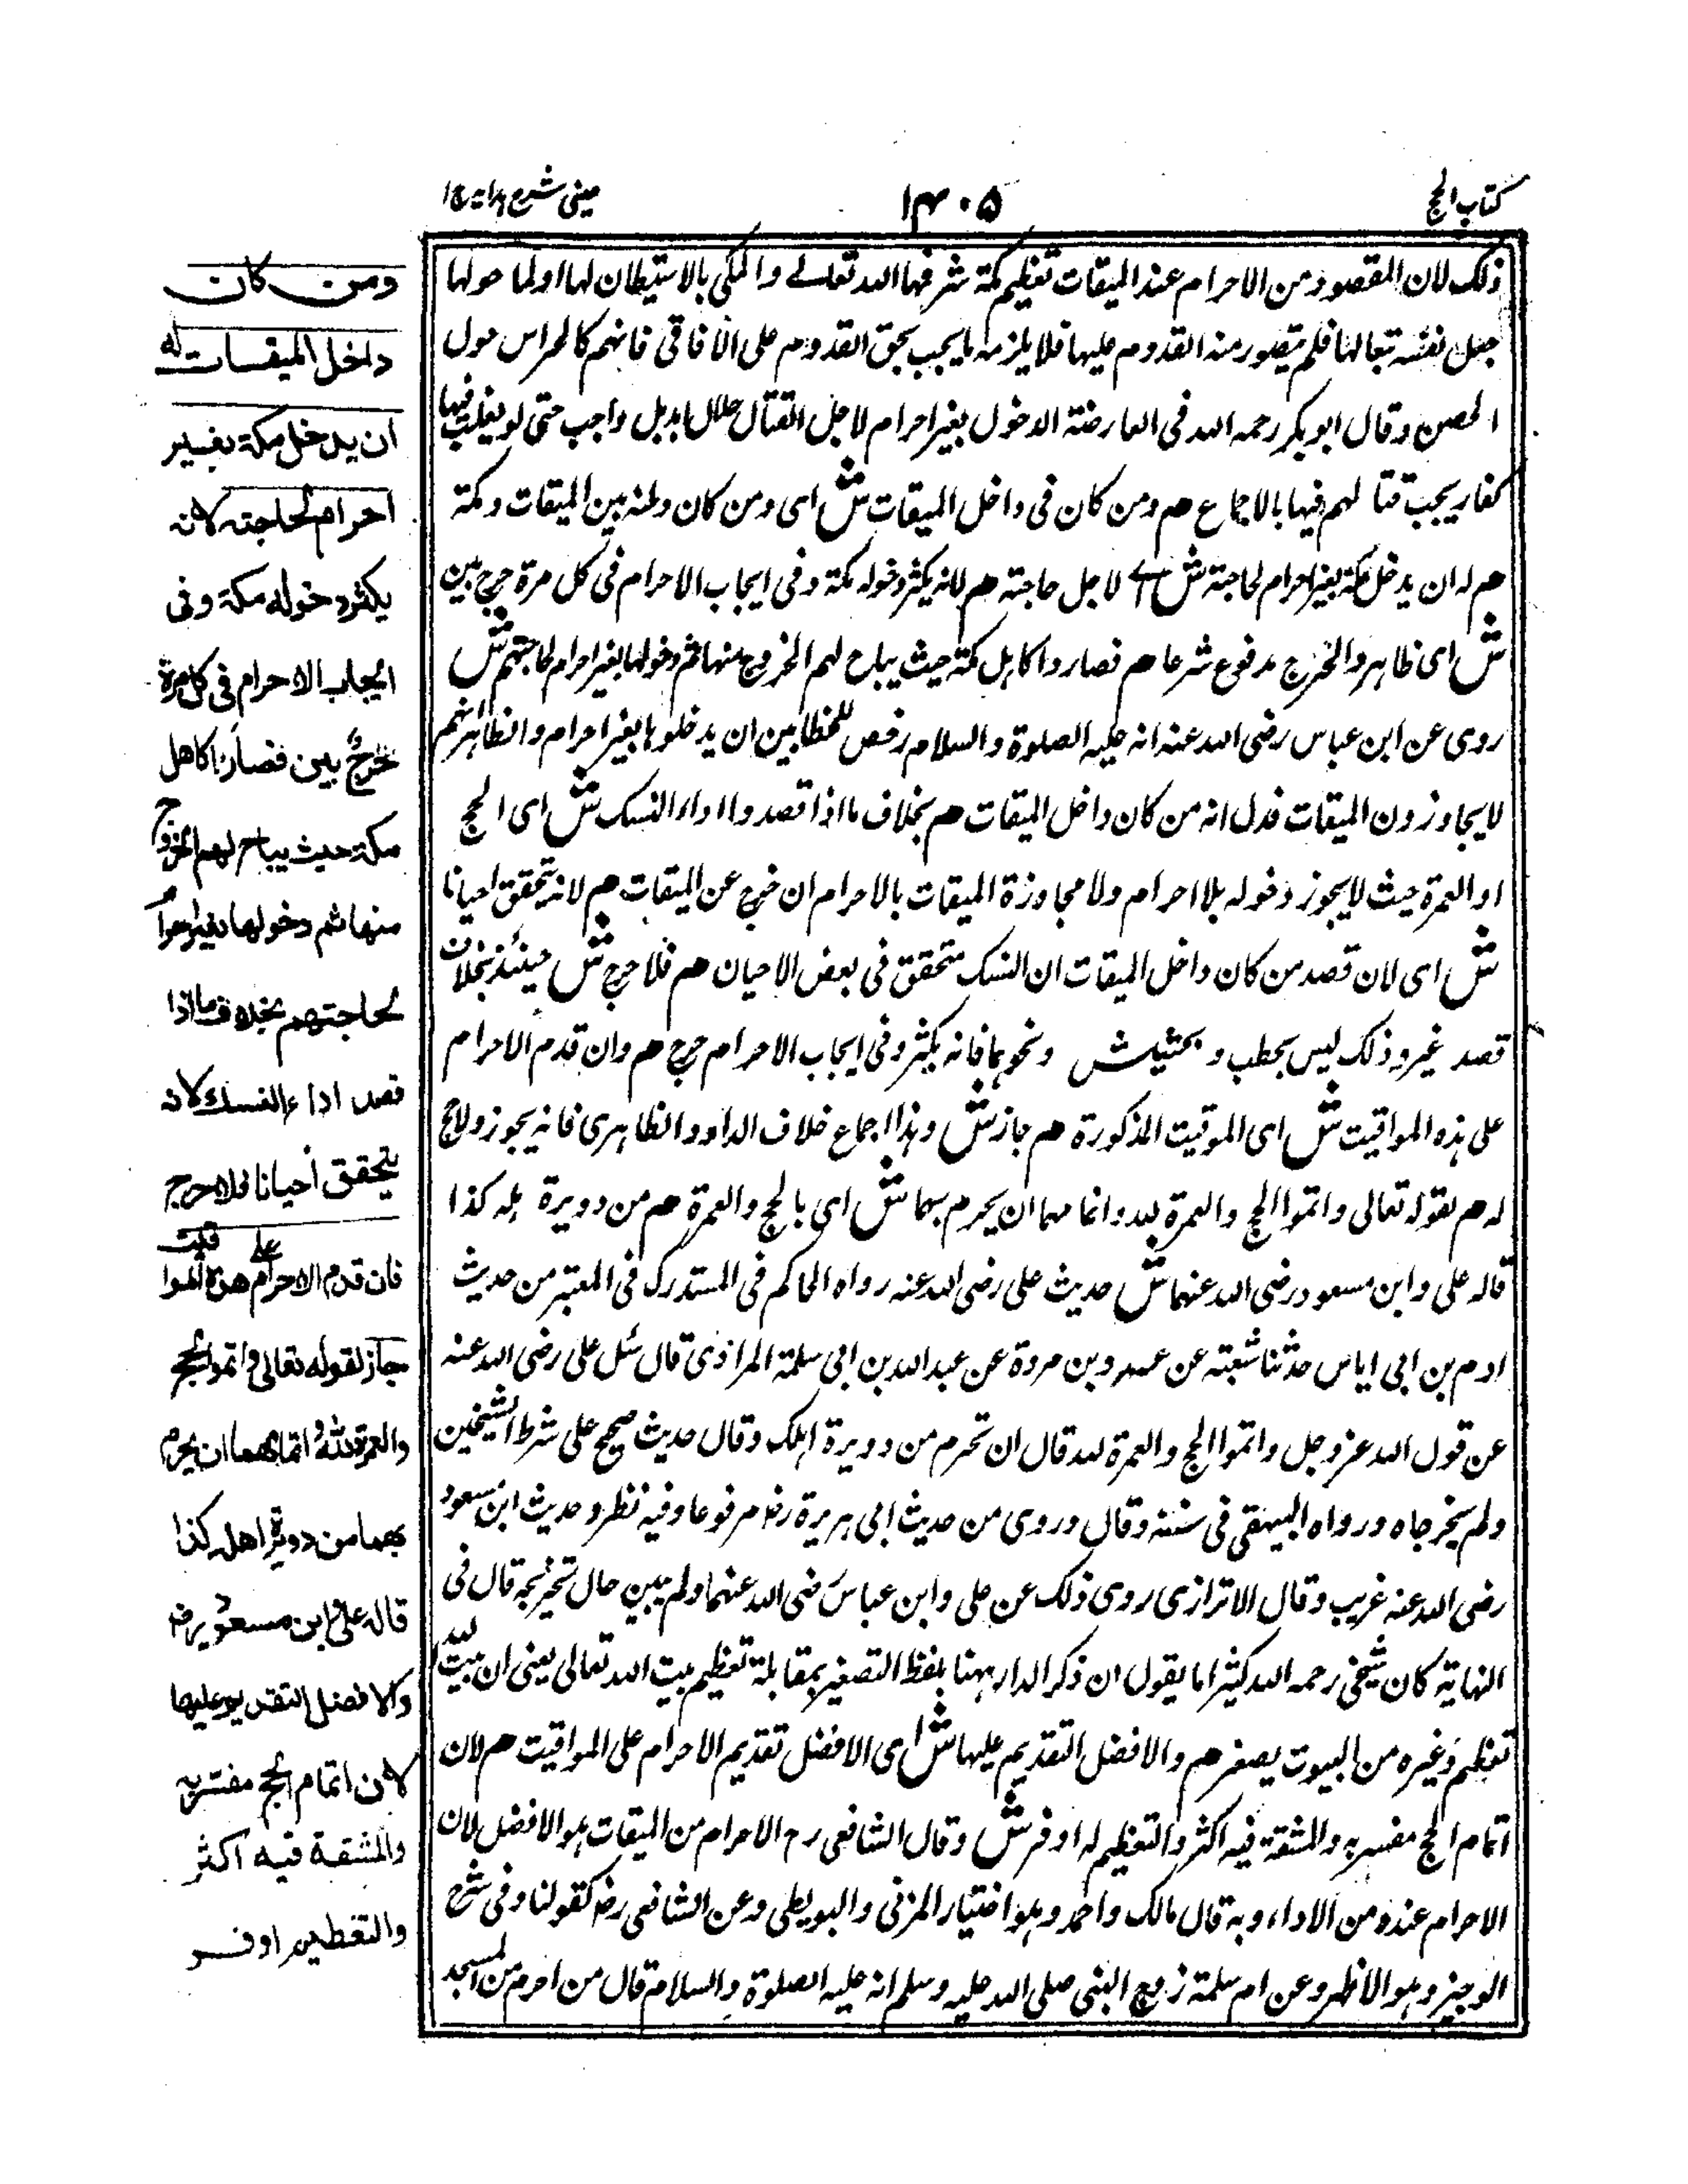 كتاب الحج
١٤٠٥
عينى شرح هدايه ج ١
ذلك لان المقصود من الاحرام عند الميقات تعظيم مكة شرفها الله تعالے والمكى بالاستيطان لها او لما حولها
جعل نفسه تبعا لها فلم يتصور منه القدوم عليها فلا يلزمه ما يجب بحق القدوم على الآفاقى فانهم كالحراس حول
الحصن وقال ابو بكر رحمه الله فى العارضة الدخول بغير احرام لاجل القتال حلال ابدا بل واجب حتى لو يغلب فيها
كفار يجب قتا لهم فيها بالاجماع هم ومن كان فى داخل الميقات ش اى ومن كان وطنه بين الميقات ومكة
هم له ان يدخل مكة بغير احرام لحاجة ش اے لاجل حاجته هم لانه يكثر دخوله مكة وفى ايجاب الاحرام فى كل مرة حرج بين
ش اى ظاهر والحرج مدفوع شرعا هم فصاروا كاهل مكة حيث يباح لهم الخروج منها ثم دخولها بغير احرام لحاجتهم ش
روى عن ابن عباس رضى الله عنه انه عليه الصلوة والسلام رخص للحطابين ان يدخلوها بغير احرام والظاهر انهم
لا يجاوزون الميقات فدل انه من كان داخل الميقات هم بخلاف ما اذا قصدوا اداء النسك ش اى الحج
او العمرة حيث لا يجوز دخوله بلا احرام ولا مجاوزة الميقات بالاحرام ان خرج عن الميقات هم لانه يتحقق احيانا
ش اى لان قصد من كان داخل الميقات ان النسك متحقق فى بعض الاحيان هم فلا حرج ش حينئذ بخلاف
قصد غيره وذلك ليس بحطب و بحشيش ونحوهما فانه يكثر وفى ايجاب الاحرام حرج هم وان قدم الاحرام
على هذه المواقيت ش اى الموقيت المذكورة هم جاز ش وهذا اجماع خلاف الداود الظاهرى فانه يجوز ولا حج
له هم لقوله تعالى واتموا الحج والعمرة لله واتمامهما ان يحرم بهما ش اى بالحج والعمرة هم من دويرة اهله كذا
قاله على وابن مسعود رضى الله عنهما ش حديث على رضى الله عنه رواه الحاكم فى المستدرك فى المعتبر من حديث
ادم بن ابى اياس حدثنا شعبته عن عمرو بن مروة عن عبد الله بن ابى سلمة المرادى قال سئل على رضى الله عنه
عن قول الله عز وجل واتموا الحج والعمرة لله قال ان تحرم من دويرة اهلك وقال حديث صحيح على شرط الشيخين
ولم يخرجاه ورواه البيهقى فى سننه وقال وروى من حديث ابى هريرة رضـ مرفوعا وفيه نظر وحديث ابن مسعود
رضى الله عنه غريب وقال الاترازى روى ذلك عن على وابن عباس رضى الله عنهما ولم يبين حال تخريجه قال فى
النهاية كان شيخى رحمه الله كثيرا ما يقول ان ذكر الدار ههنا بلفظ التصغير بمقابلة تعظيم بيت الله تعالى يعنى ان بيت الله
تعظم وغيره من البيوت يصغر هم والافضل التقديم عليها ش اى الافضل تقديم الاحرام على المواقيت هم لان
اتمام الحج مفسر به والمشقة فيه اكثر والتعظيم له اوفر ش وقال الشافعى رح الاحرام من الميقات هو الافضل لان
الاحرام عنده من الاداء وبه قال مالك واحمد وهو اختيار المزنى والبويطى وعن الشافعى رضـ كقولنا وفى شرح
الوجيز وهو الاظهر وعن ام سلمة زوج النبى صلى الله عليه وسلم انه عليه الصلوة والسلام قال من احرم من المسجد
ومن كان
داخل الميقات له
ان يدخل مكة بغير
احرام لحاجته لانه
يكثر دخوله مكة وفى
ايجاب الاحرام فى كل مرة
حرج بين فصار كاهل
مكة حيث يباح لهم الخروج
منها ثم دخولها بغير احرام
لحاجتهم بخلاف ما اذا
قصد اداء النسك لانه
يتحقق أحيانا فلا حرج
فان قدم الاحرام على هذه المواقيت
جاز لقوله تعالى واتموا الحج
والعمرة لله واتمامهما ان يحرم
بهما من دويرة اهله كذا
قاله على وابن مسعود رضـ
والافضل التقديم عليها
لان اتمام الحج مفسر به
والمشقة فيه اكثر
والتعظيم اوفر